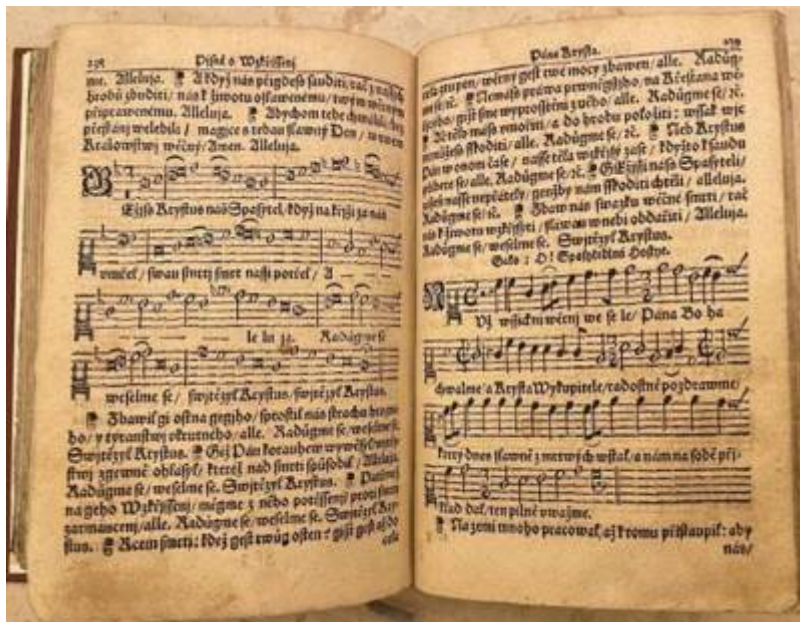 238 Pjsně o Wzkřjssenj
me. Alleluja. A když nás přigdeß sauditi, rač z nassich
hrobů zbuditi / nás k životu oslawenému / twým wěrným
připrawenému. Alleluja. Abychom tebe chwálili, bez
přestánj welebili / magjce s tebau slawný Den / w twém
Králowstwj wěčný / Amen. Alleluja.
Ežjss Krystus náß Spasytel, když na křjži za nás
vmřel / swau smrtj smrt nassi potřel / A
le lu ja. Radůgme se
weselme se / swjtězyl Krystus / swjtězyl Krystus.
Zbawil gi ostna gegjho / sprostil nás strachu
ho / y tyranstwj vkrutného / alle. Radůgme se / weselme se.
Swjtězyl Krystus. Gež Pán korauhew
stwj zgewně ohlásyl / kteréž nad smrtj způsobil / Alleluja.
Radůgme se / weselme se. Swjtězyl Krystus. Patřmež
na geho Wzkřjssenj / měgme z něho potěssenj proti smrti
zarmaucenj / alle. Radůgme se / weselme se. Swjtězyl Kry-
stus. Rcem smrti: kdež gest twůg osten? giž gest
cela
Pána Krysta. 239
cela ztupen / wěrný gest twé mocy zbawen / alle. Radůg-
me se / rč. Nemáß práwa prwněgssjho / na Křesťana wě-
řjcýho / gižt sme wyprosstěni z něho / alle. Radůgme se / rč.
Ač tělo máß vmořiti / a do hrobu položiti: wssak wjc
nemůžeß sskoditi / alle. Radůgme se / rč. Neb Krystus
Pán w onom čase / nasse těla wzkřjsý zase / když to k saudu
pobere se / alle. Radůgme se / rč. Gežjssi náß Spasyteli /
nasse nepřátely / genžby nám sskoditi chtěli / alleluja.
Radůgme se / rč. Zbaw nás swazku wěčné smrti / rač
nás k žiwotu wzkřjsyti / slawau w nebi obdařiti / Alleluja.
Radůgme se / weselme se. Swjtězyl Krystus.
Gako: O! Spasytedlná Hostye.
Už wssickni wěrnj we se le / Pána Bo ha
chwalme / a Krysta Wykupitele / radostně pozdrawme /
který dnes slawně z mrtwých wstal / a nám na sobě přj-
klad dal / ten pilně vwažme.
Na zemi mnoho pracowal, až k tomu přistaupil: aby
nás /